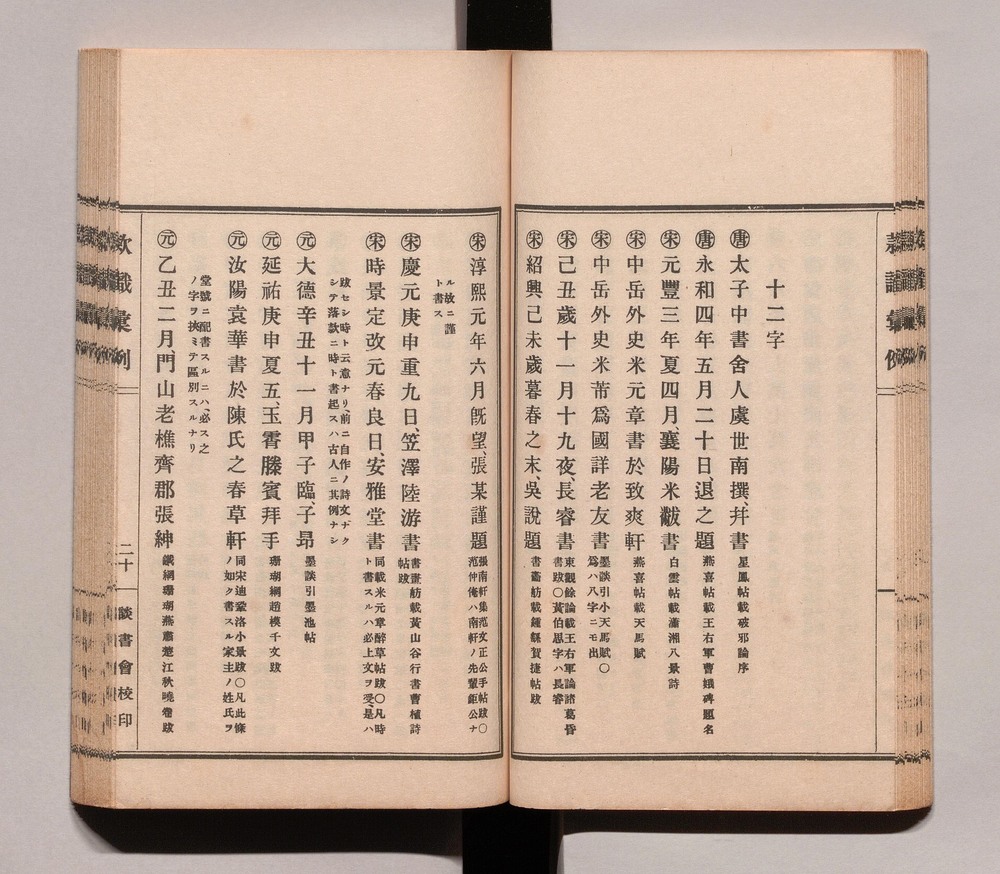 十二字
㊄唐 太子中書舍人虞世南撰、幷書 星鳳帖載破邪論序
唐 永和四年五月二十日、退之題 燕喜帖載王右軍曹娥碑題名
宋 元豐三年夏四月、襄陽米黻書 白雲帖載瀟湘八景詩
宋 中岳外史米元章書於致爽軒 燕喜帖載天馬賦
宋 中岳外史米芾爲國詳老友書 墨談引小天馬賦〇
爲ハ八字ニモ出
宋 己丑歲十一月十九夜、長睿書 東觀餘論載王右軍論諸葛昏
書跋〇黃伯思字ハ長睿
宋 紹興己未歲暮春之末、吳說題 書畫舫載鍾繇賀捷帖跋
宋 淳熙元年六月旣望、張某謹題 張南軒集范文正公手帖跋〇
范仲俺ハ南軒ノ先輩鉅公ナ
ル故ニ謹
ト書ス
宋 慶元庚申重九日、笠澤陸游書 書畫舫載黃山谷行書曹植詩
帖跋
宋 時景定改元春良日、安雅堂書 同載米元章醉草帖跋〇凡時
ト書スルハ必上文ヲ受、是ハ
跋セシ時ト云意ナリ、前ニ自作ノ詩文ナク
シテ落款ニ時ト書起スハ古人ニ其例ナシ
元 大德辛丑十一月甲子臨、子昂 墨談引墨池帖
元 延祐庚申夏五、玉霄滕賓拜手 珊瑚網趙模千文跋
元 汝陽袁華書於陳氏之春草軒 同宋迪蒙洛小景跋〇凡此條
ノ如ク書スル家主ノ姓氏ヲ
堂號ニ配書スルニハ、必ス之
ノ字ヲ挾ミテ區別スルナリ
元 乙丑二月、門山老樵齊郡張紳 鐵網珊瑚燕肅楚江秋曉卷跋
款識彙例
二十
談書會校印